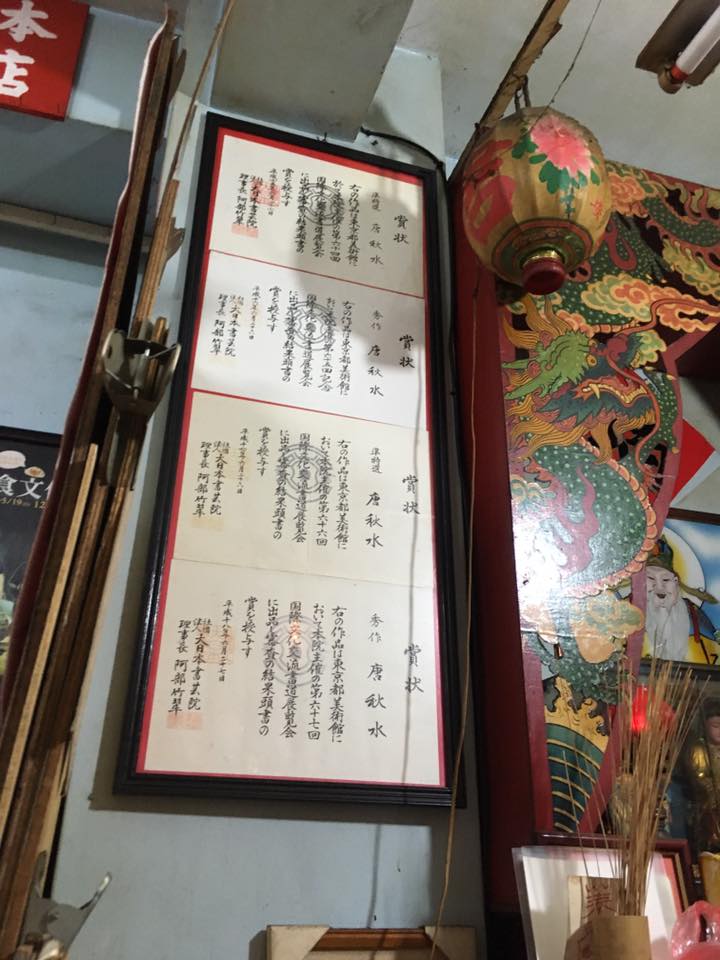 本店
賞状
準特選 唐秋水
右の作品は東京都美術館に
於て本院主催の第六十四回
国際文化交流書道展覧会
に出品審査の結果頭書の
賞を授与す
社団法人大日本書芸院
理事長 阿部竹翠
賞状
秀作 唐秋水
右の作品は東京都美術館に
おいて本院主催の第六十五回記念
国際文化交流書道展覧会
に出品審査の結果頭書の
賞を授与す
社団法人大日本書芸院
理事長 阿部竹翠
賞状
準特選 唐秋水
右の作品は東京都美術館に
おいて本院主催の第六十六回
国際文化交流書道展覧会
に出品審査の結果頭書の
賞を授与す
平成十七年六月二十八日
社団法人大日本書芸院
理事長 阿部竹翠
賞状
秀作 唐秋水
右の作品は東京都美術館に
おいて本院主催の第六十七回
国際文化交流書道展覧会
に出品審査の結果頭書の
賞を授与す
平成十八年六月二十七日
社団法人大日本書芸院
理事長 阿部竹翠
食文
5/19